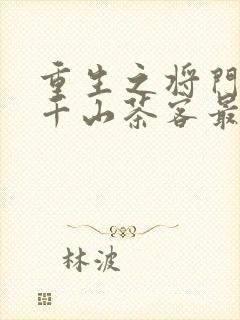 重生之将门
千山茶客最
林波